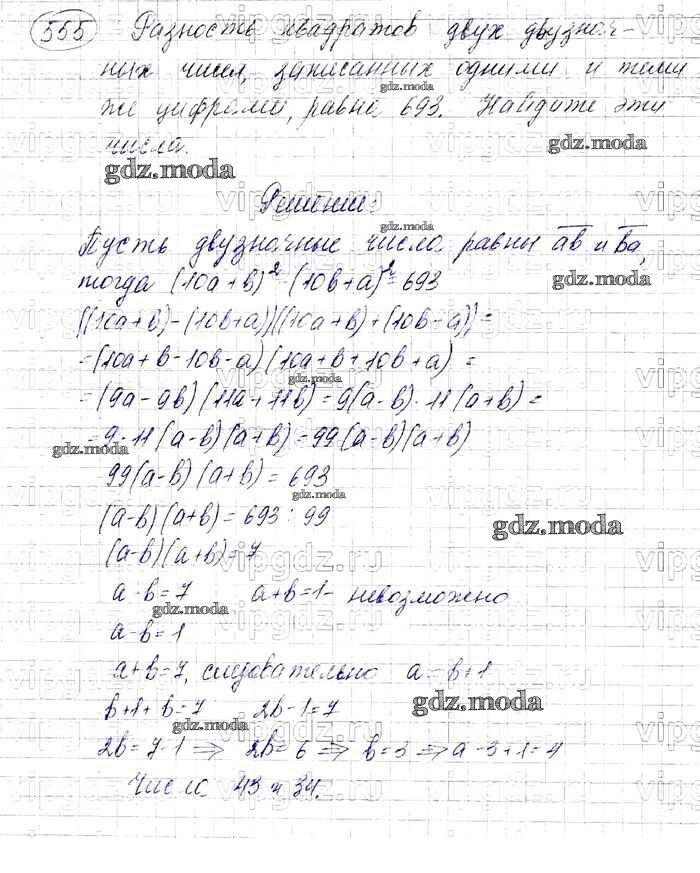 555 Разность квадратов двух двузнач-
ных чисел, записанных одними и теми
же цифрами, равна 693. Найдите эти
числа.
gdz.moda
Решение:
Пусть двузначные числа равны ab и ba,
тогда (10a+b)²-(10b+a)²=693
((10a+b)-(10b+a))((10a+b)+(10b+a))=
=(10a+b-10b-a)(10a+b+10b+a)=
=(9a-9b)(11a+11b)=9(a-b)·11(a+b)=
=9·11(a-b)(a+b)=99(a-b)(a+b)
99(a-b)(a+b)=693
(a-b)(a+b)=693:99
(a-b)(a+b)=7
a-b=7 a+b=1- невозможно
a-b=1
a+b=7, следовательно a=b+1
b+1+b=7 2b-1=7
2b=7-1 ⇒ 2b=6 ⇒ b=3 ⇒ a-3+1=4
Числа 43 и 34.
vipgdz.ru